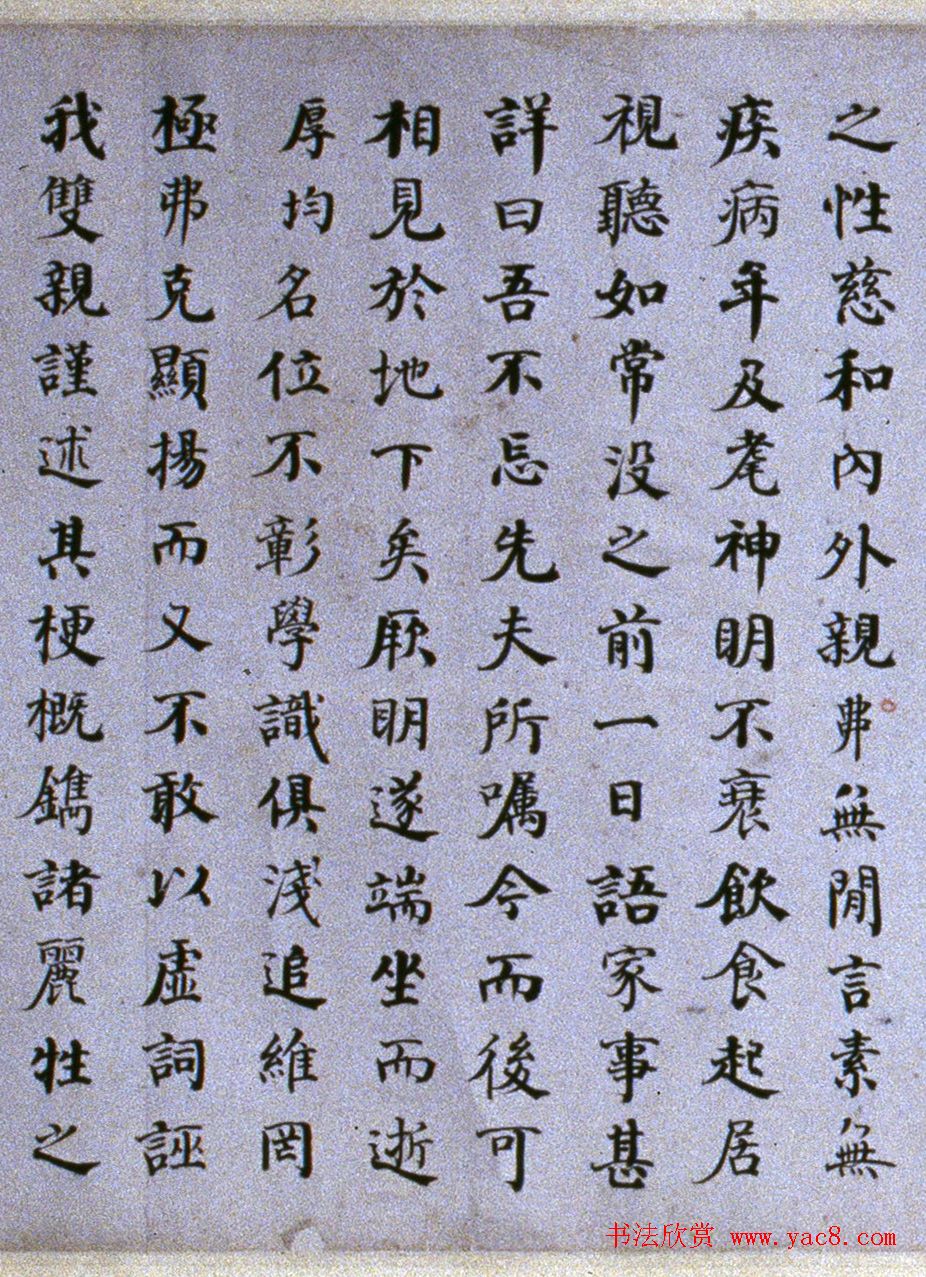 之性慈和內外親弗無閒言素無
疾病年及耄神明不衰飲食起居
視聽如常没之前一日語家事甚
詳曰吾不忘先夫所囑今而後可
相見於地下矣厥明遂端坐而逝
厚均名位不彰學識俱淺追維罔
極弗克顯揚而又不敢以虛詞誣
我雙親謹述其梗概鐫諸麗牲之
书法欣赏 www.yac8.com